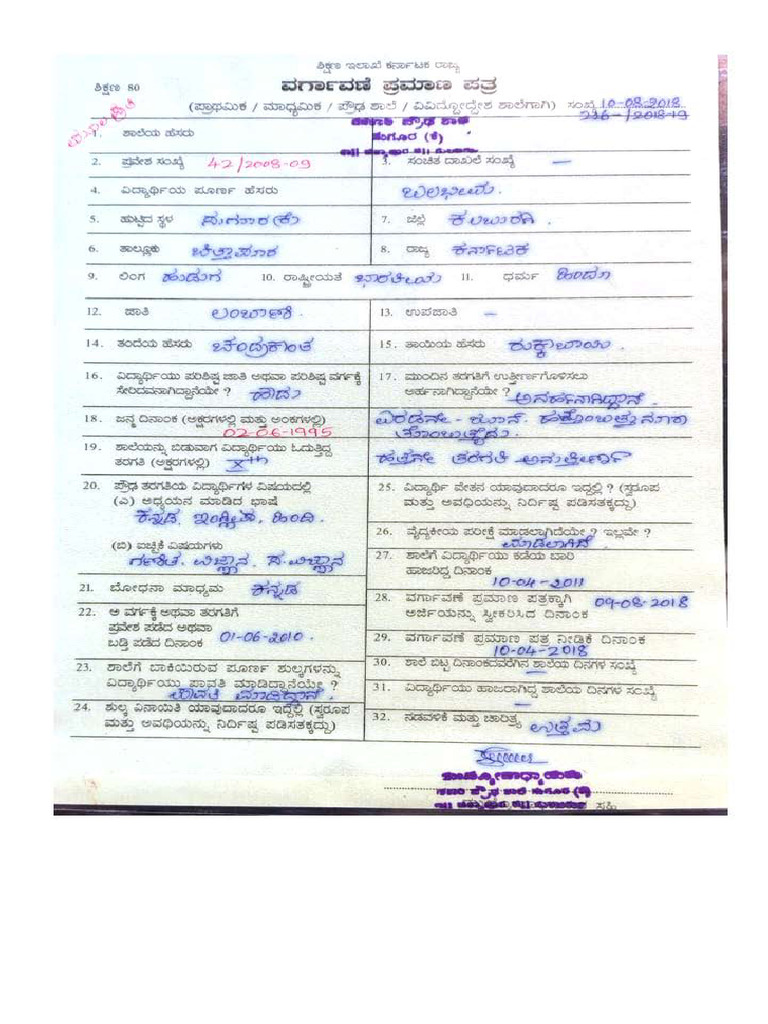 ಶಿಕ್ಷಣ ಇಲಾಖೆ ಕರ್ನಾಟಕ ರಾಜ್ಯ
ಶಿಕ್ಷಣ 80 ವರ್ಗಾವಣೆ ಪ್ರಮಾಣ ಪತ್ರ
(ಪ್ರಾಥಮಿಕ / ಮಾಧ್ಯಮಿಕ / ಪ್ರೌಢ ಶಾಲೆ / ವಿವಿದ್ದೋದ್ದೇಶ ಶಾಲೆಗಾಗಿ) ಸಂಖ್ಯೆ 10-08-2018
236-/2018-19
1. ಶಾಲೆಯ ಹೆಸರು ಪ್ರೌಢ ಶಾಲೆ
2. ಪ್ರವೇಶ ಸಂಖ್ಯೆ 42/2008-09 3. ಸಂಚಿತ ದಾಖಲೆ ಸಂಖ್ಯೆ —
4. ವಿದ್ಯಾರ್ಥಿಯ ಪೂರ್ಣ ಹೆಸರು ಬಲಭೀಮ.
5. ಹುಟ್ಟಿದ ಸ್ಥಳ 7. ಜಿಲ್ಲೆ ಕಲಬುರಗಿ.
6. ತಾಲ್ಲೂಕು ಚಿತ್ತಾಪೂರ 8. ರಾಜ್ಯ ಕರ್ನಾಟಕ
9. ಲಿಂಗ ಹುಡುಗ 10. ರಾಷ್ಟ್ರೀಯತೆ ಭಾರತೀಯ 11. ಧರ್ಮ ಹಿಂದೂ
12. ಜಾತಿ ಲಂಬಾಣಿ. 13. ಉಪಜಾತಿ —
14. ತಂದೆಯ ಹೆಸರು ಚಂದ್ರಕಾಂತ 15. ತಾಯಿಯ ಹೆಸರು ರುಕ್ಕಾಬಾಯಿ.
16. ವಿದ್ಯಾರ್ಥಿಯು ಪರಿಶಿಷ್ಟ ಜಾತಿ ಅಥವಾ ಪರಿಶಿಷ್ಟ ವರ್ಗಕ್ಕೆ
ಸೇರಿದವನಾಗಿದ್ದಾನೆಯೇ ? ಹೌದು
17. ಮುಂದಿನ ತರಗತಿಗೆ ಉತ್ತೀರ್ಣಗೊಳಿಸಲು
ಅರ್ಹನಾಗಿದ್ದಾನೆಯೇ ? ಅನರ್ಹನಾಗಿದ್ದಾನೆ.
18. ಜನ್ಮ ದಿನಾಂಕ (ಅಕ್ಷರಗಳಲ್ಲಿ ಮತ್ತು ಅಂಕಗಳಲ್ಲಿ)
02-06-1995
ಎರಡನೇ - ಜೂನ್ - ಹತ್ತೊಂಬತ್ತು ನೂರಾ
ತೊಂಬತ್ತೈದು.
19. ಶಾಲೆಯನ್ನು ಬಿಡುವಾಗ ವಿದ್ಯಾರ್ಥಿಯು ಓದುತ್ತಿದ್ದ
ತರಗತಿ (ಅಕ್ಷರಗಳಲ್ಲಿ) Xth
ಹತ್ತನೇ ತರಗತಿ ಅನುತ್ತೀರ್ಣ
20. ಪ್ರೌಢ ತರಗತಿಯ ವಿದ್ಯಾರ್ಥಿಗಳ ವಿಷಯದಲ್ಲಿ
(ಎ) ಅಧ್ಯಯನ ಮಾಡಿದ ಭಾಷೆ
ಕನ್ನಡ, ಇಂಗ್ಲೀಷ, ಹಿಂದಿ.
(ಬಿ) ಐಚ್ಛಿಕೆ ವಿಷಯಗಳು
ಗಣಿತ. ವಿಜ್ಞಾನ. ಸ.ವಿಜ್ಞಾನ
21. ಬೋಧನಾ ಮಾಧ್ಯಮ ಕನ್ನಡ
22. ಆ ವರ್ಗಕ್ಕೆ ಅಥವಾ ತರಗತಿಗೆ
ಪ್ರವೇಶ ಪಡೆದ ಅಥವಾ
ಬಡ್ತಿ ಪಡೆದ ದಿನಾಂಕ 01-06-2010.
23. ಶಾಲೆಗೆ ಬಾಕಿಯಿರುವ ಪೂರ್ಣ ಶುಲ್ಕಗಳನ್ನು
ವಿದ್ಯಾರ್ಥಿಯು ಪಾವತಿ ಮಾಡಿದ್ದಾನೆಯೇ ?
ಪಾವತಿ ಮಾಡಿದ್ದಾನೆ.
24. ಶುಲ್ಕ ವಿನಾಯಿತಿ ಯಾವುದಾದರೂ ಇದ್ದಲ್ಲಿ (ಸ್ವರೂಪ
ಮತ್ತು ಅವಧಿಯನ್ನು ನಿರ್ದಿಷ್ಟ ಪಡಿಸತಕ್ಕದ್ದು)
25. ವಿದ್ಯಾರ್ಥಿ ವೇತನ ಯಾವುದಾದರೂ ಇದ್ದಲ್ಲಿ ? (ಸ್ವರೂಪ
ಮತ್ತು ಅವಧಿಯನ್ನು ನಿರ್ದಿಷ್ಟ ಪಡಿಸತಕ್ಕದ್ದು)
26. ವೈದ್ಯಕೀಯ ಪರೀಕ್ಷೆ ಮಾಡಲ್ಪಾಗಿದೆಯೇ ? ಇಲ್ಲವೇ ?
ಮಾಡಲಾಗಿದೆ
27. ಶಾಲೆಗೆ ವಿದ್ಯಾರ್ಥಿಯು ಕಡೆಯ ಬಾರಿ
ಹಾಜರಿದ್ದ ದಿನಾಂಕ
10-04-2011
28. ವರ್ಗಾವಣೆ ಪ್ರಮಾಣ ಪತ್ರಕ್ಕಾಗಿ
ಅರ್ಜಿಯನ್ನು ಸ್ವೀಕರಿಸಿದ ದಿನಾಂಕ 09-08-2018
29. ವರ್ಗಾವಣೆ ಪ್ರಮಾಣ ಪತ್ರ ನೀಡಿಕೆ ದಿನಾಂಕ
10-04-2018
30. ಶಾಲೆ ಬಿಟ್ಟ ದಿನಾಂಕದವರೆಗಿನ ಶಾಲೆಯ ದಿನಗಳ ಸಂಖ್ಯೆ
—
31. ವಿದ್ಯಾರ್ಥಿಯು ಹಾಜರಾಗಿದ್ದ ಶಾಲೆಯ ದಿನಗಳ ಸಂಖ್ಯೆ
—
32. ನಡವಳಿಕೆ ಮತ್ತು ಚಾರಿತ್ರ್ಯ ಉತ್ತಮ
ಮುಖ್ಯೋಪಾಧ್ಯಾಯರು
ಸಹಿ